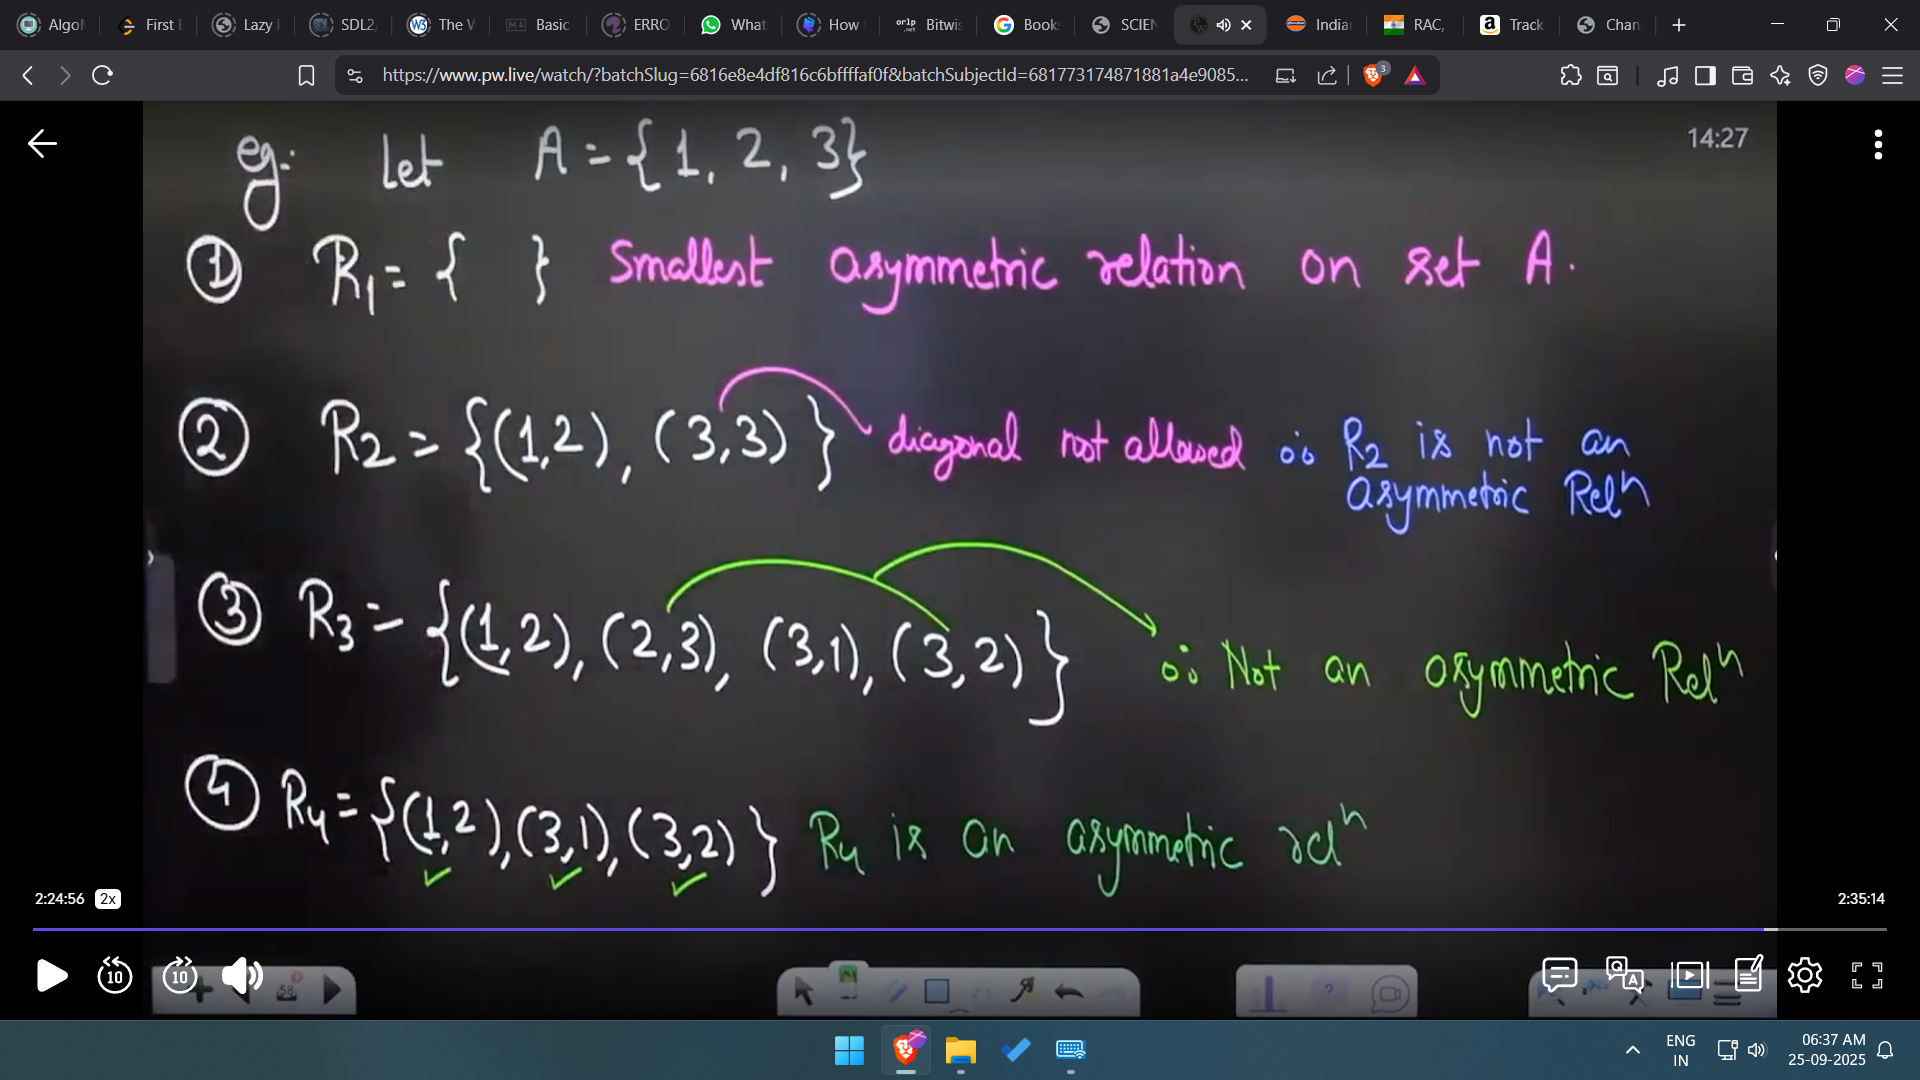 Algo
First
Lazy
SDL2,
The V
Basic
ERRO
What
How
Bitwis
Book
SCIEN
India
RAC,
Track
Chan
https://www.pw.live/watch/?batchSlug=6816e8e4df816c6bffffaf0f&batchSubjectId=681773174871881a4e9085...
3
14:27
eg:- Let A = {1, 2, 3}
① R₁ = { } Smallest asymmetric relation on set A.
② R₂ = {(1,2), (3,3)} diagonal not allowed ∴ R₂ is not an
asymmetric Relⁿ
③ R₃ = {(1,2), (2,3), (3,1), (3,2)} ∴ Not an asymmetric Relⁿ
④ R₄ = {(1,2), (3,1), (3,2)} R₄ is an asymmetric relⁿ
2:24:56 2x
2:35:14
10
10
58
ENG
IN
06:37 AM
25-09-2025